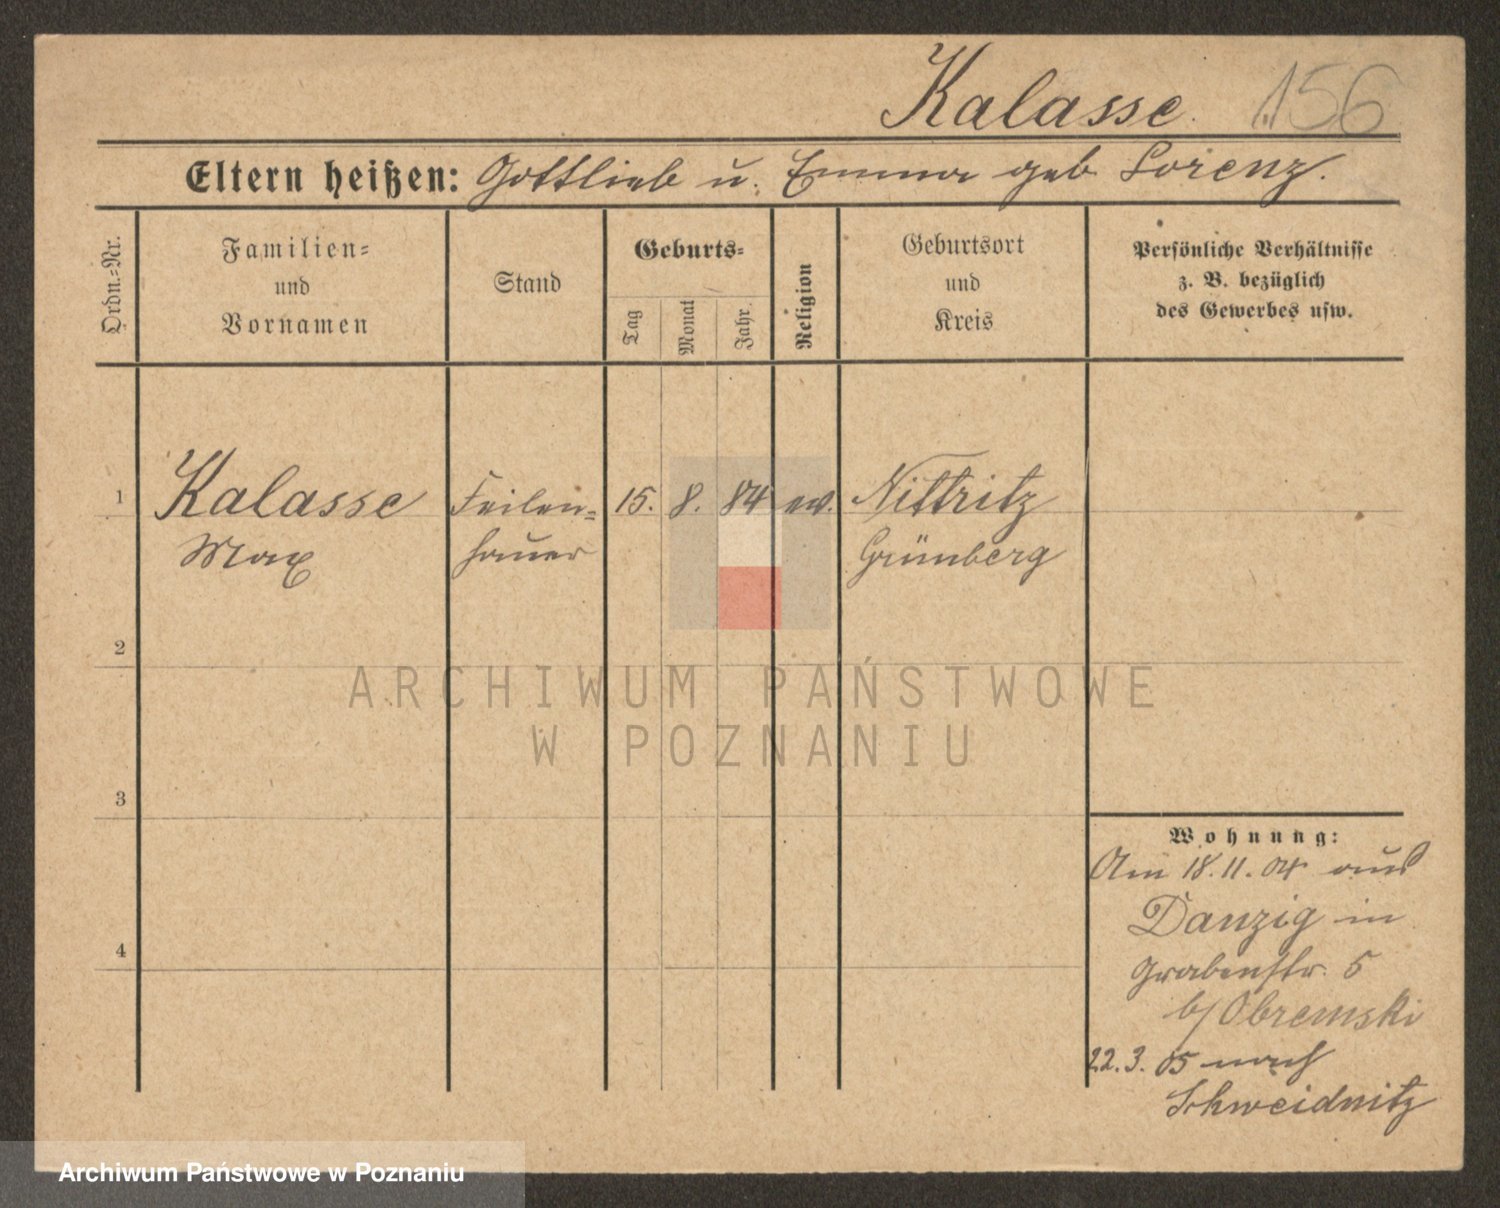 Kalasse. 156
Eltern heißen: Gottlieb u. Emma geb Lorenz.
Ordn.=Nr.
Familien=
und
Vornamen
Stand
Geburts=
Tag
Monat
Jahr.
Religion
Geburtsort
und
Kreis
Persönliche Verhältnisse
z. B. bezüglich
des Gewerbes usw.
1 Kalasse Feilen= 15. 8. 84 ev. Nittritz
Max hauer Grünberg
2
3
4
ARCHIWUM PAŃSTWOWE
W POZNANIU
Wohnung:
Am 18.11.04 aus
Danzig in
Grabenstr. 5
b/ Obremski
22.3.05 nach
Schweidnitz
Archiwum Państwowe w Poznaniu